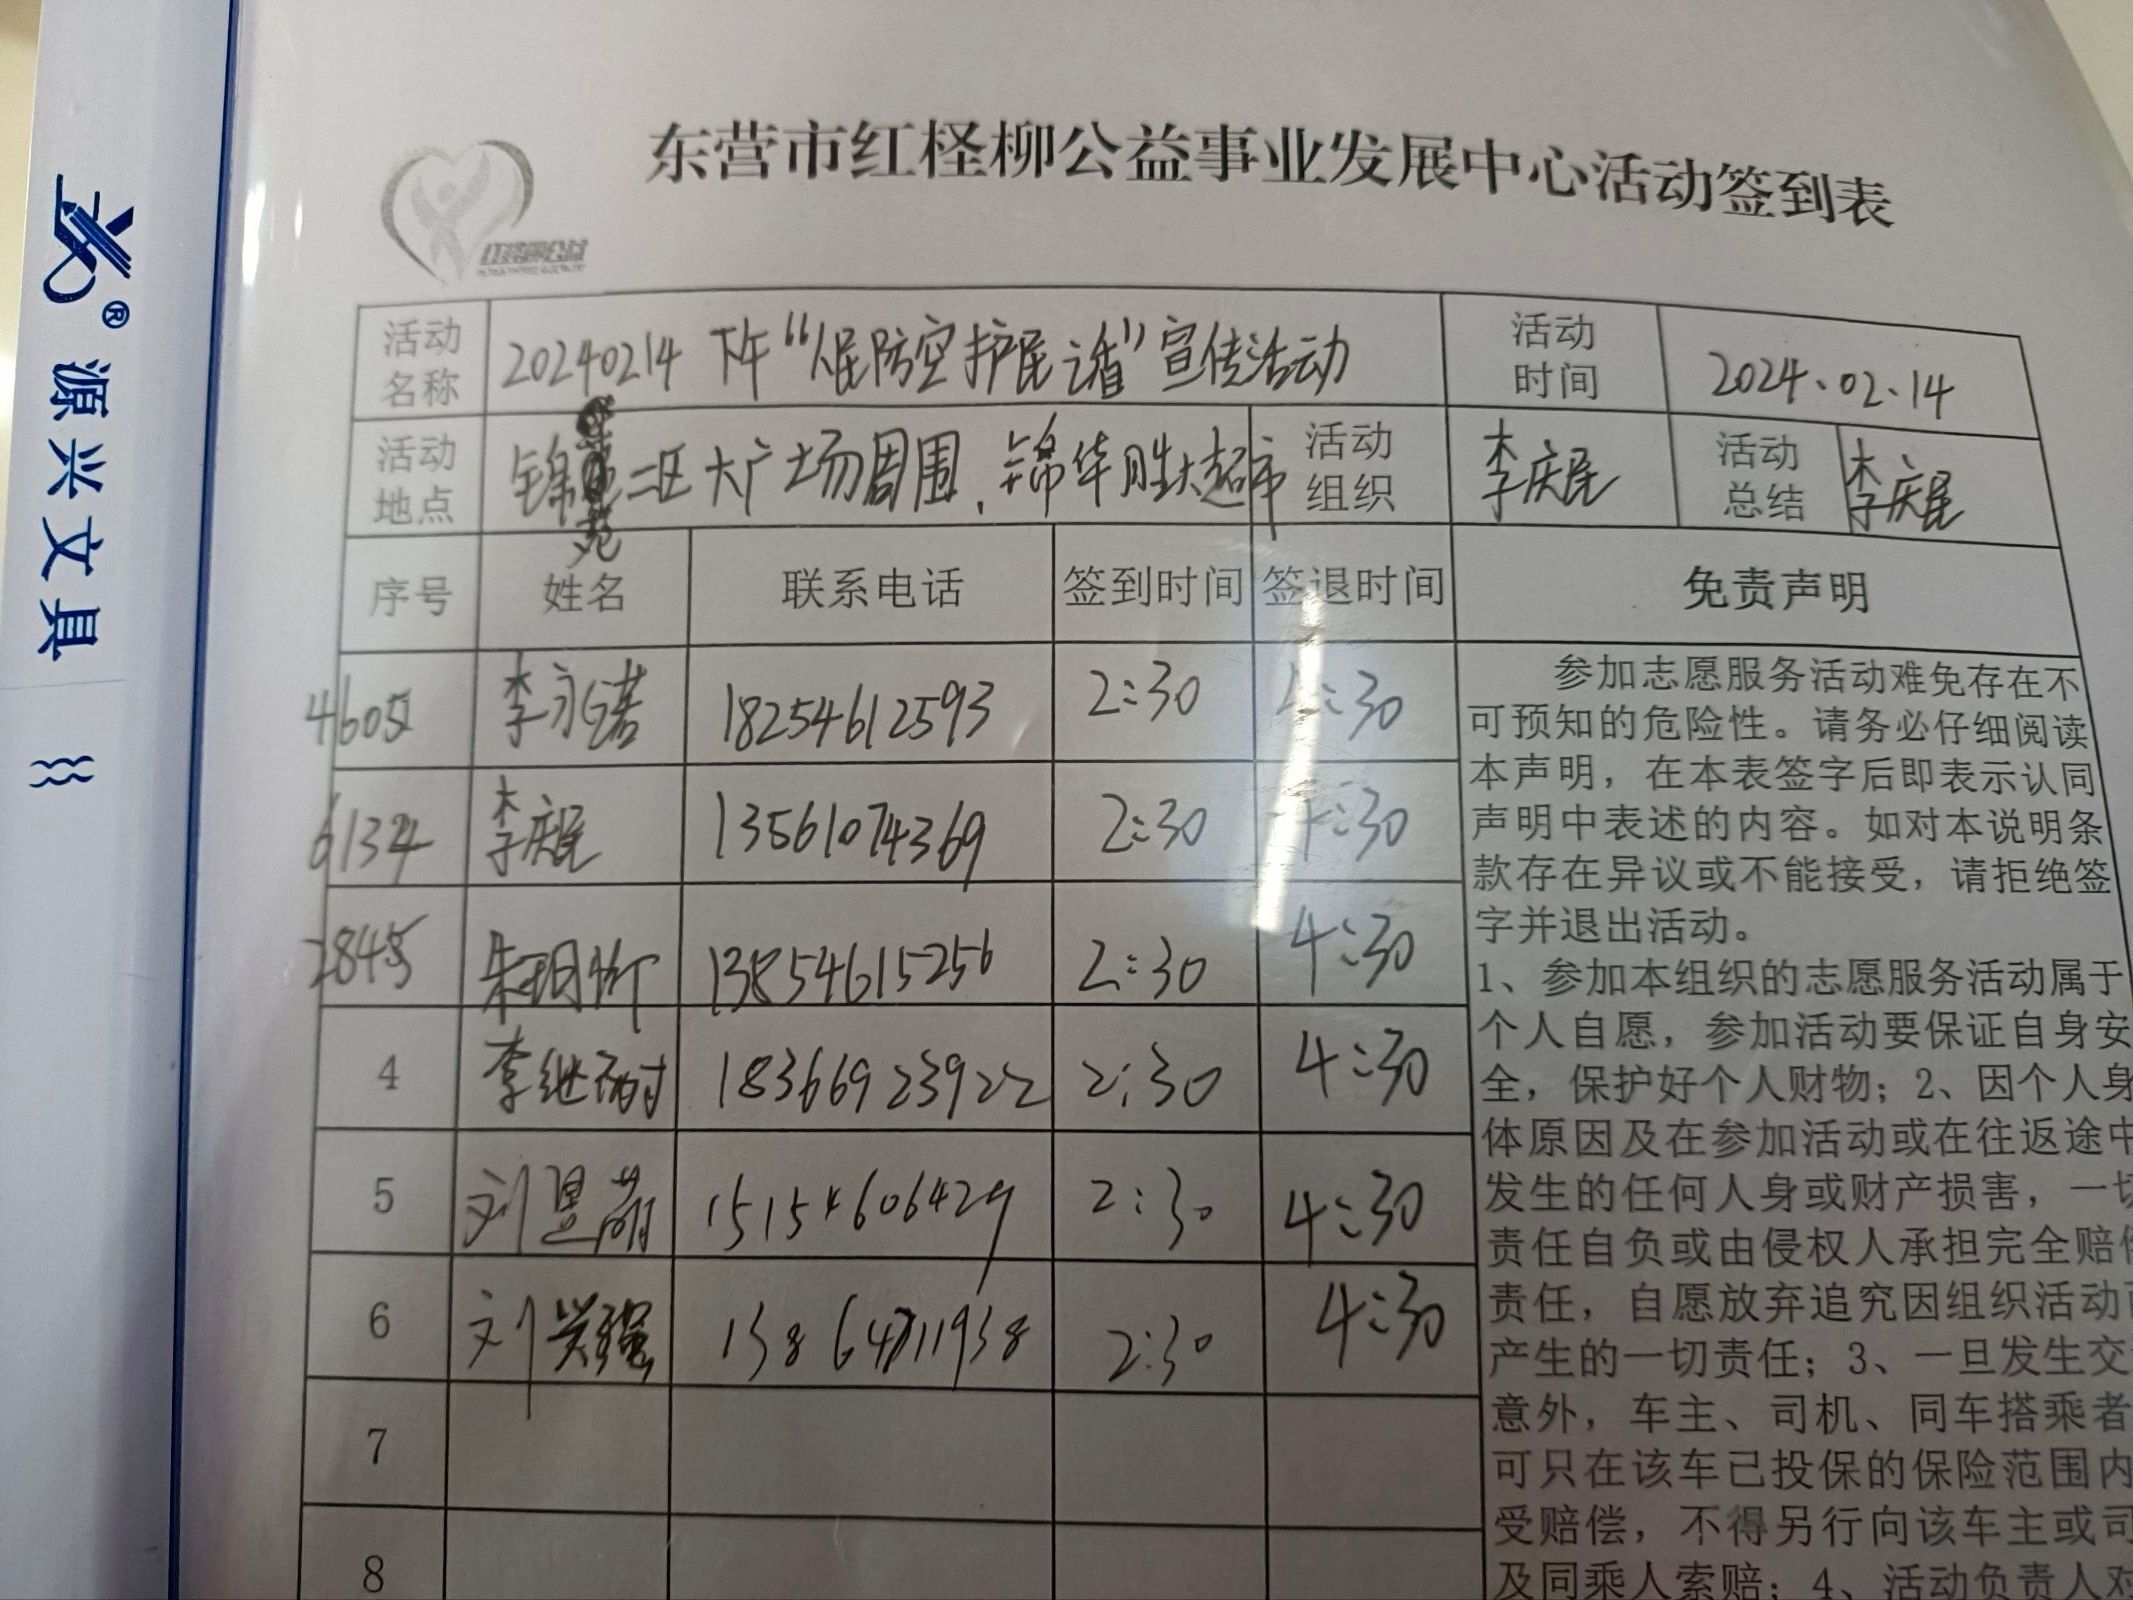 源兴文具
®
东营市红柽柳公益事业发展中心活动签到表
红柽柳公益
活动名称 20240214 下午“人民防空 护民之盾”宣传活动 活动时间 2024.02.14
活动地点 锦苑二区大广场周围、锦华胜大超市 活动组织 李庆民 活动总结 李庆民
序号 姓名 联系电话 签到时间 签退时间 免责声明
4605 李永诺 18254612593 2:30 4:30
6134 李庆民 13561074369 2:30 4:30
2845 13854615256 2:30 4:30
4 李继 18366923922 2:30 4:30
5 刘昱萌 15154606429 2:30 4:30
6 刘兴强 13864711938 2:30 4:30
7
8
参加志愿服务活动难免存在不
可预知的危险性。请务必仔细阅读
本声明，在本表签字后即表示认同
声明中表述的内容。如对本说明条
款存在异议或不能接受，请拒绝签
字并退出活动。
1、参加本组织的志愿服务活动属于
个人自愿，参加活动要保证自身安
全，保护好个人财物；2、因个人身
体原因及在参加活动或在往返途中
发生的任何人身或财产损害，一切
责任自负或由侵权人承担完全赔偿
责任，自愿放弃追究因组织活动而
产生的一切责任；3、一旦发生交
意外，车主、司机、同车搭乘者
可只在该车已投保的保险范围内
受赔偿，不得另行向该车主或司
及同乘人索赔；4、活动负责人对